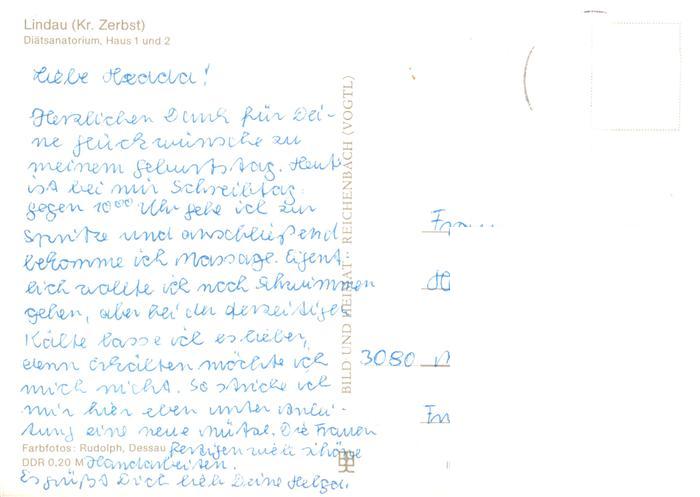 Lindau (Kr. Zerbst)
Diätsanatorium, Haus 1 und 2
Liebe Hedda!
Herzlichen Dank für Dei-
ne Glückwünsche zu
meinem Geburtstag. Heute
ist bei mir Schreibtag.
gegen 10⁰⁰ Uhr gehe ich zur
Spritze und anschließend
bekomme ich Massage. Eigent
lich wollte ich noch Schwimmen
gehen, aber bei der derzeitigen
Kälte lasse ich es lieber,
denn erkälten möchte ich
mich nicht. So stricke ich
mir hier eben unter Anlei-
tung eine neue Mütze. Die Frauen
fertigen viele schöne
Handarbeiten.
Es grüßt Dich lieb Deine Helga.
Farbfotos: Rudolph, Dessau
DDR 0,20 M
BILD UND HEIMAT REICHENBACH (VOGTL)
3080